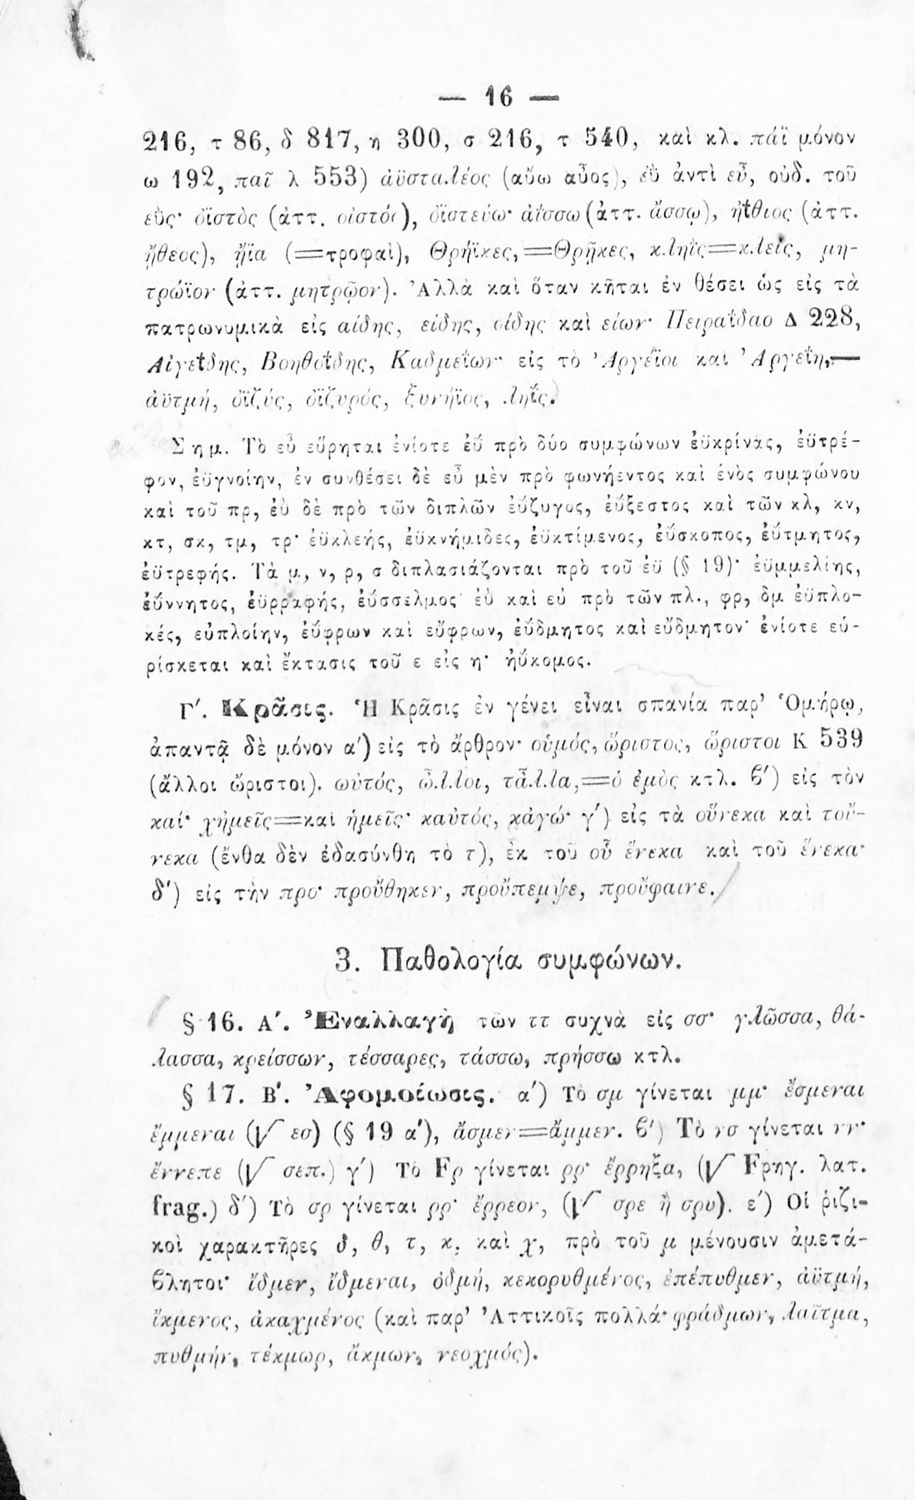 — 16 —
216, τ 86, δ 817, η 300, σ 216, τ 540, καὶ κλ. πάϊ μόνον
ω 192, παῖ λ 553) ἀϋσταλέος (αὔω αὖος), ἐῢ ἀντὶ εὖ, οὐδ. τοῦ
εΰς· ὀϊστὸς (ἀττ. οἰστός), ὀϊστεύω· ἀΐσσω (ἀττ. ἄσσω), ἠΐθιος (ἀττ.
ᾔθεος), ἤϊα (=τροφαὶ), Θρήϊκες,=Θρῇκες, κληῒς=κλείς, μη-
τρώϊον (ἀττ. μητρῷον). Ἀλλὰ καὶ ὅταν κῆται ἐν θέσει ὡς εἰς τὰ
πατρωνυμικὰ εἰς αίδης, είδης, οίδης καὶ είων· Πειραΐδαο Δ 228,
Αἰγεΐδης, Βοηθοΐδης, Καδμεΐων· εἰς τὸ Ἀργέϊοι καὶ Ἀργεΐη,—
ἀϋτμή, ὀϊζύς, ὀϊζυρός, ξυνήϊος, ληΐς.
Σημ. Τὸ εὖ εὕρηται ἐνίοτε ἐΰ πρὸ δύο συμφώνων ἐϋκρίνας, ἐϋτρέ-
φον, ἐϋγνοίην, ἐν συνθέσει δὲ εὖ μὲν πρὸ φωνήεντος καὶ ἑνὸς συμφώνου
καὶ τοῦ πρ, ἐὺ δὲ πρὸ τῶν διπλῶν ἐΰζυγος, ἐΰξεστος καὶ τῶν κλ, κν,
κτ, σκ, τμ, τρ· ἐϋκλεής, ἐϋκνήμιδες, ἐϋκτίμενος, ἐΰσκοπος, ἐΰτμητος,
ἐϋτρεφής. Τὰ μ, ν, ρ, σ διπλασιάζονται πρὸ τοῦ ἐϋ (§ 19)· ἐϋμμελίης,
ἐΰννητος, ἐϋρραφής, ἐΰσσελμος· ἐὺ καὶ εὐ πρὸ τῶν πλ., φρ, δμ ἐϋπλο-
κές, εὐπλοίην, ἐΰφρων καὶ εὔφρων, ἐΰδμητος καὶ εὔδμητον· ἐνίοτε εὑ-
ρίσκεται καὶ ἔκτασις τοῦ ε εἰς η· ἠΰκομος.
Γ′. Κρᾶσις. Ἡ Κρᾶσις ἐν γένει εἶναι σπανία παρ' Ὁμήρῳ,
ἀπαντᾷ δὲ μόνον α′) εἰς τὸ ἄρθρον· οὑμός, ὥριστος, ὥριστοι Κ 539
(ἄλλοι ὤριστοι). ωὐτός, ὦλλοι, τἆλλα,=ὁ ἐμὸς κτλ. β′) εἰς τὸν
καί· χἠμεῖς=καὶ ἡμεῖς· καὐτός, κἀγώ· γ′) εἰς τὰ οὕνεκα καὶ τοὔ-
νεκα (ἔνθα δὲν ἐδασύνθη τὸ τ), ἐκ τοῦ οὗ ἕνεκα καὶ τοῦ ἕνεκα·
δ′) εἰς τὴν προ· προὔθηκεν, προὔπεμψε, προὔφαινε.
3. Παθολογία συμφώνων.
§ 16. Α′. Ἐναλλαγὴ τῶν ττ συχνὰ εἰς σσ· γλῶσσα, θά-
λασσα, κρείσσων, τέσσαρες, τάσσω, πρήσσω κτλ.
§ 17. Β′. Ἀφομοίωσις. α′) Τὸ σμ γίνεται μμ· ἔσμεναι
ἔμμεναι (√ εσ) (§ 19 α′), ἄσμεν=ἄμμεν. β′) Τὸ νσ γίνεται νν·
ἔννεπε (√ σεπ.) γ′) Τὸ Fρ γίνεται ρρ· ἔρρηξα, (√ Fρηγ. λατ.
frag.) δ′) Τὸ σρ γίνεται ρρ· ἔρρεον, (√ σρε ἢ σρυ). ε′) Οἱ ῥιζι-
κοὶ χαρακτῆρες δ, θ, τ, κ, καὶ χ, πρὸ τοῦ μ μένουσιν ἀμετά-
βλητοι· ἴδμεν, ἴδμεναι, ὀδμή, κεκορυθμένος, ἐπέπυθμεν, ἀϋτμή,
ἴκμενος, ἀκαχμένος (καὶ παρ' Ἀττικοῖς πολλά· φράδμων, λαῖτμα,
πυθμήν, τέκμωρ, ἄκμων, νεοχμός).